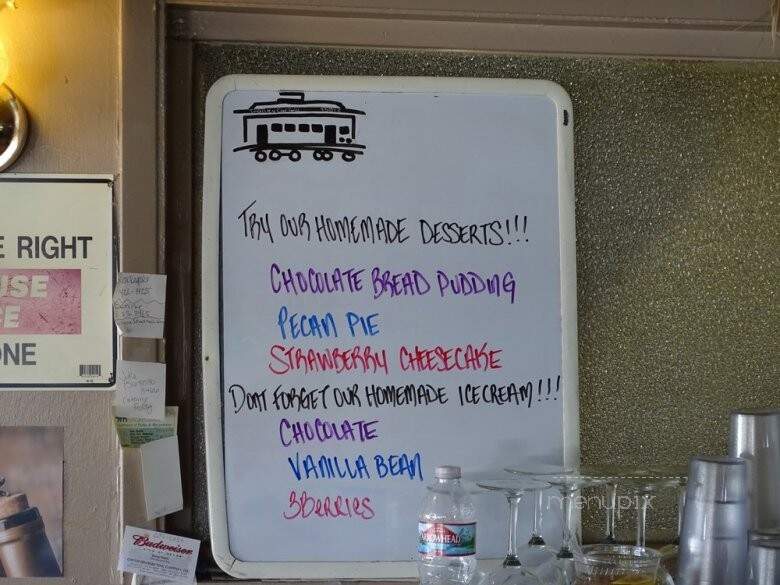 TRY OUR HOMEMADE DESSERTS!!!
CHOCOLATE BREAD PUDDING
PECAN PIE
STRAWBERRY CHEESECAKE
DONT FORGET OUR HOMEMADE ICECREAM!!!
CHOCOLATE
VANILLA BEAN
3BERRIES
E RIGHT
USE
CE
ONE
Budweiser
ARROWHEAD
menupix